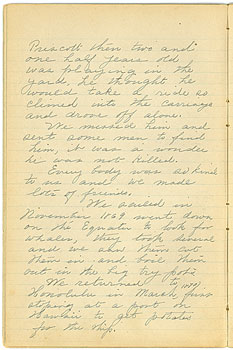 Prescott then two and
one half years old
was playing in the
yard, he thought he
would take a ride so
climed into the carriage
and drove off alone.
We missed him and
sent some men to find
him, it was a wonder
he was not killed.
Every body was so kind
to us and we made
lots of friends.
We sailed in
November 1869 went down
on the Equator to look for
whales, they took several
and we saw them cut
them in and boil them
out in the big try pots
We returned to
Honolulu in March first
stoping at a port on
Hawaii to get potatoes
for the ship.